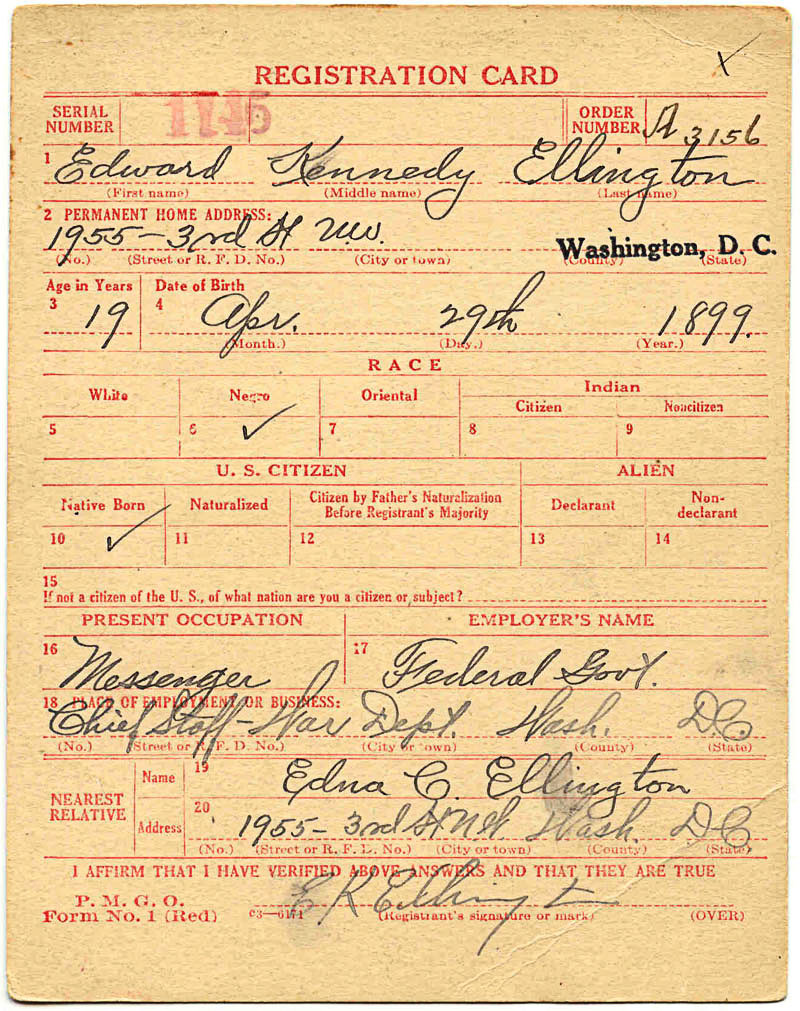 REGISTRATION CARD
SERIAL NUMBER 1145 ORDER NUMBER A 3156
1 Edward Kennedy Ellington
(First name) (Middle name) (Last name)
2 PERMANENT HOME ADDRESS:
1955 - 3rd St N.W. Washington, D. C.
(No.) (Street or R. F. D. No.) (City or town) (County) (State)
Age in Years Date of Birth
3 19 4 Apr. 29th 1899.
(Month.) (Day.) (Year.)
RACE
White Negro Oriental Indian
Citizen Noncitizen
5 6 ✓ 7 8 9
U. S. CITIZEN ALIEN
Native Born Naturalized Citizen by Father's Naturalization Before Registrant's Majority Declarant Non-declarant
10 ✓ 11 12 13 14
15
If not a citizen of the U. S., of what nation are you a citizen or subject?
PRESENT OCCUPATION EMPLOYER'S NAME
16 Messenger 17 Federal Govt.
18 PLACE OF EMPLOYMENT OR BUSINESS:
Chief Staff - War Dept. Wash. DC
(No.) (Street or R. F. D. No.) (City or town) (County) (State)
NEAREST RELATIVE Name 19 Edna C. Ellington
Address 20 1955 - 3rd St NW Wash. DC
(No.) (Street or R. F. D. No.) (City or town) (County) (State)
I AFFIRM THAT I HAVE VERIFIED ABOVE ANSWERS AND THAT THEY ARE TRUE
P. M. G. O.
Form No. 1 (Red) C3—6171 E K Ellington
(Registrant's signature or mark) (OVER)